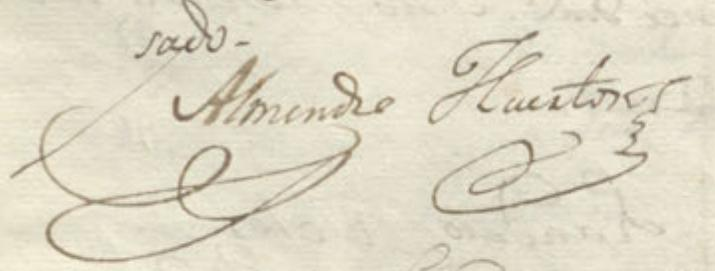 sado-
Almendro Huertos